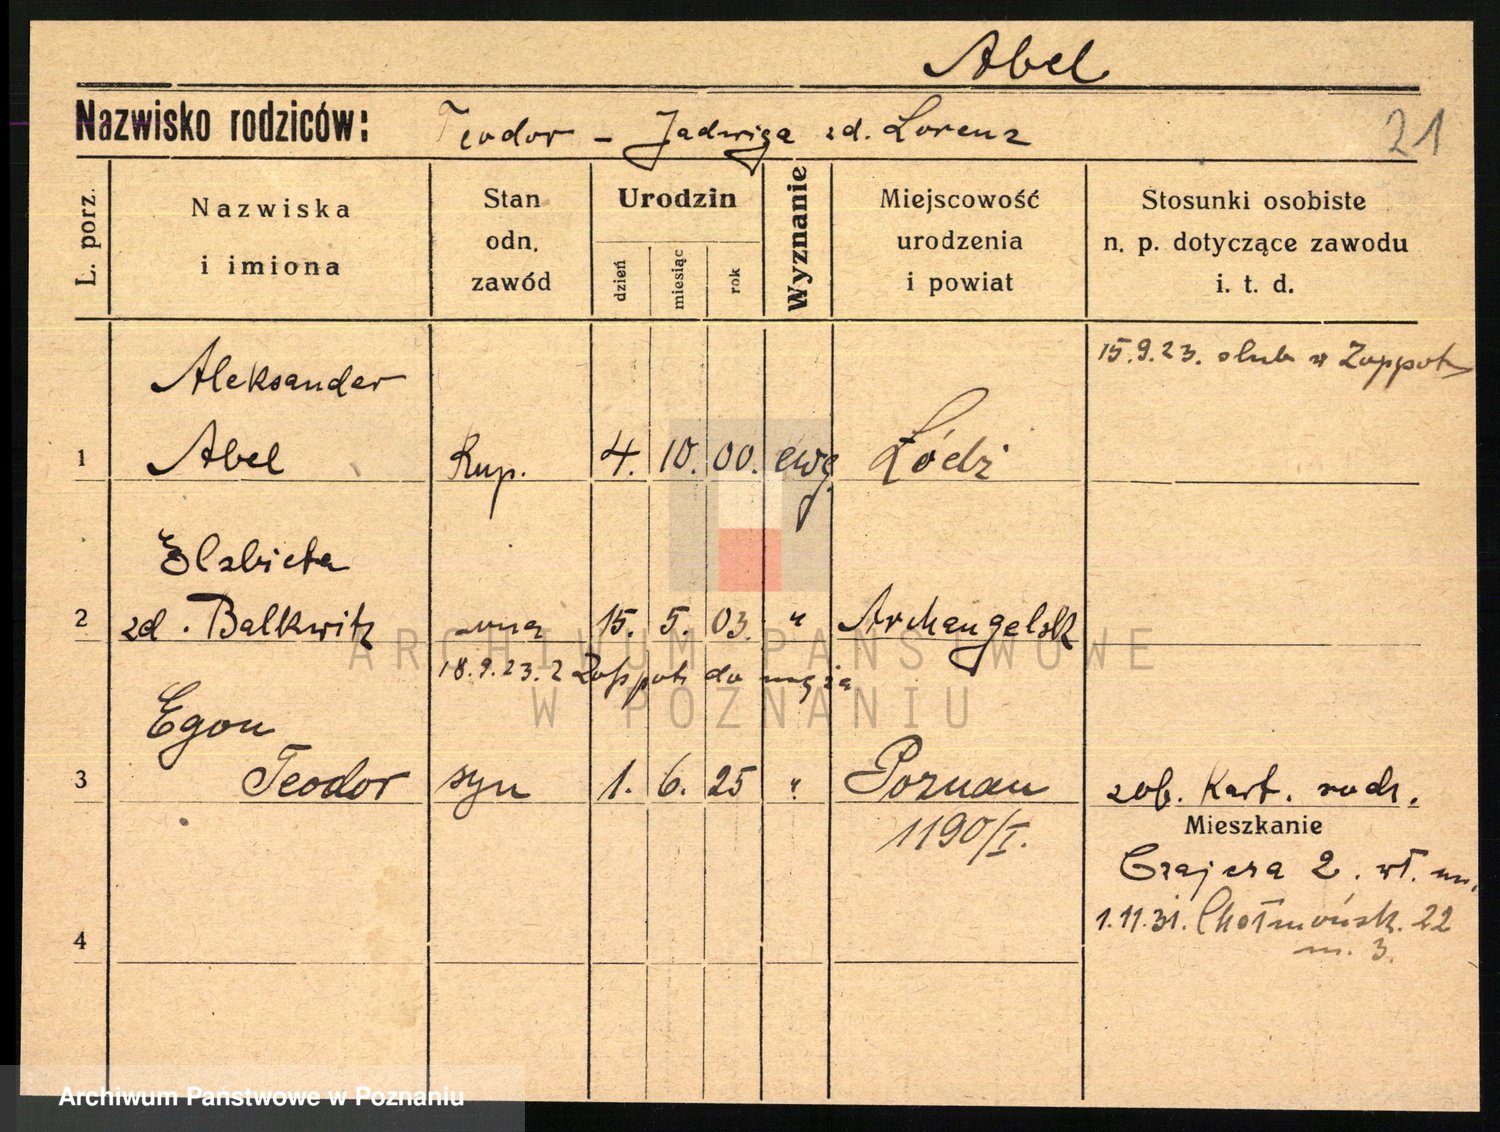 Abel
Nazwisko rodziców: Teodor - Jadwiga zd. Lorenz
21
L. porz.
Nazwiska
i imiona
Stan
odn.
zawód
Urodzin
dzień
miesiąc
rok
Wyznanie
Miejscowość
urodzenia
i powiat
Stosunki osobiste
n. p. dotyczące zawodu
i. t. d.
15.9.23. slub w Zoppot
Aleksander
1 Abel Kup. 4. 10. 00. ewg. Łódź
Elzbieta
2 zd. Balkwitz 15. 5. 03. " Archangelsk
18.9.23. z Zoppot do męża
Egon
3 Teodor syn 1. 6. 25 " Poznan zob. Kart. rodz.
1190/I.
Mieszkanie
Czajcza 2. wł. m.
1.11.31. Chełmońsk. 22
m. 3.
4
ARCHIWUM PAŃSTWOWE
W POZNANIU
Archiwum Państwowe w Poznaniu